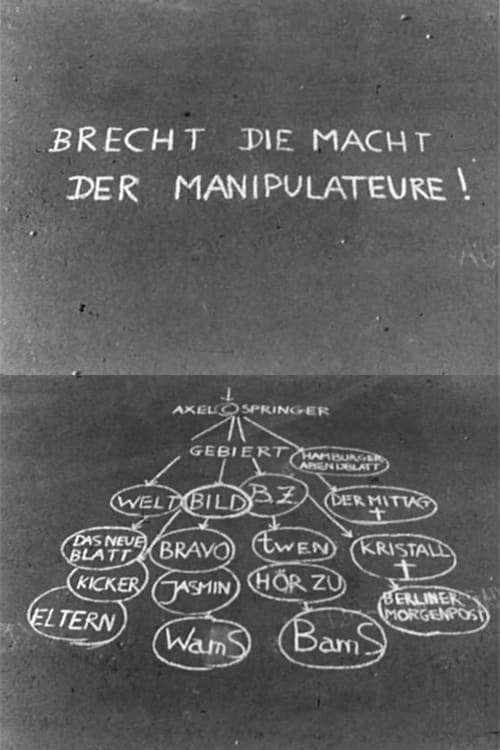 BRECHT DIE MACHT
DER MANIPULATEURE!
AXEL C SPRINGER
GEBIERT
HAMBURGER
ABENDBLATT
WELT
BILD
B.Z.
DER MITTAG
DAS NEUE
BLATT
BRAVO
tWEN
KRISTALL
KICKER
JASMIN
HÖR ZU
BERLINER
MORGENPOST
ELTERN
WamS
BamS